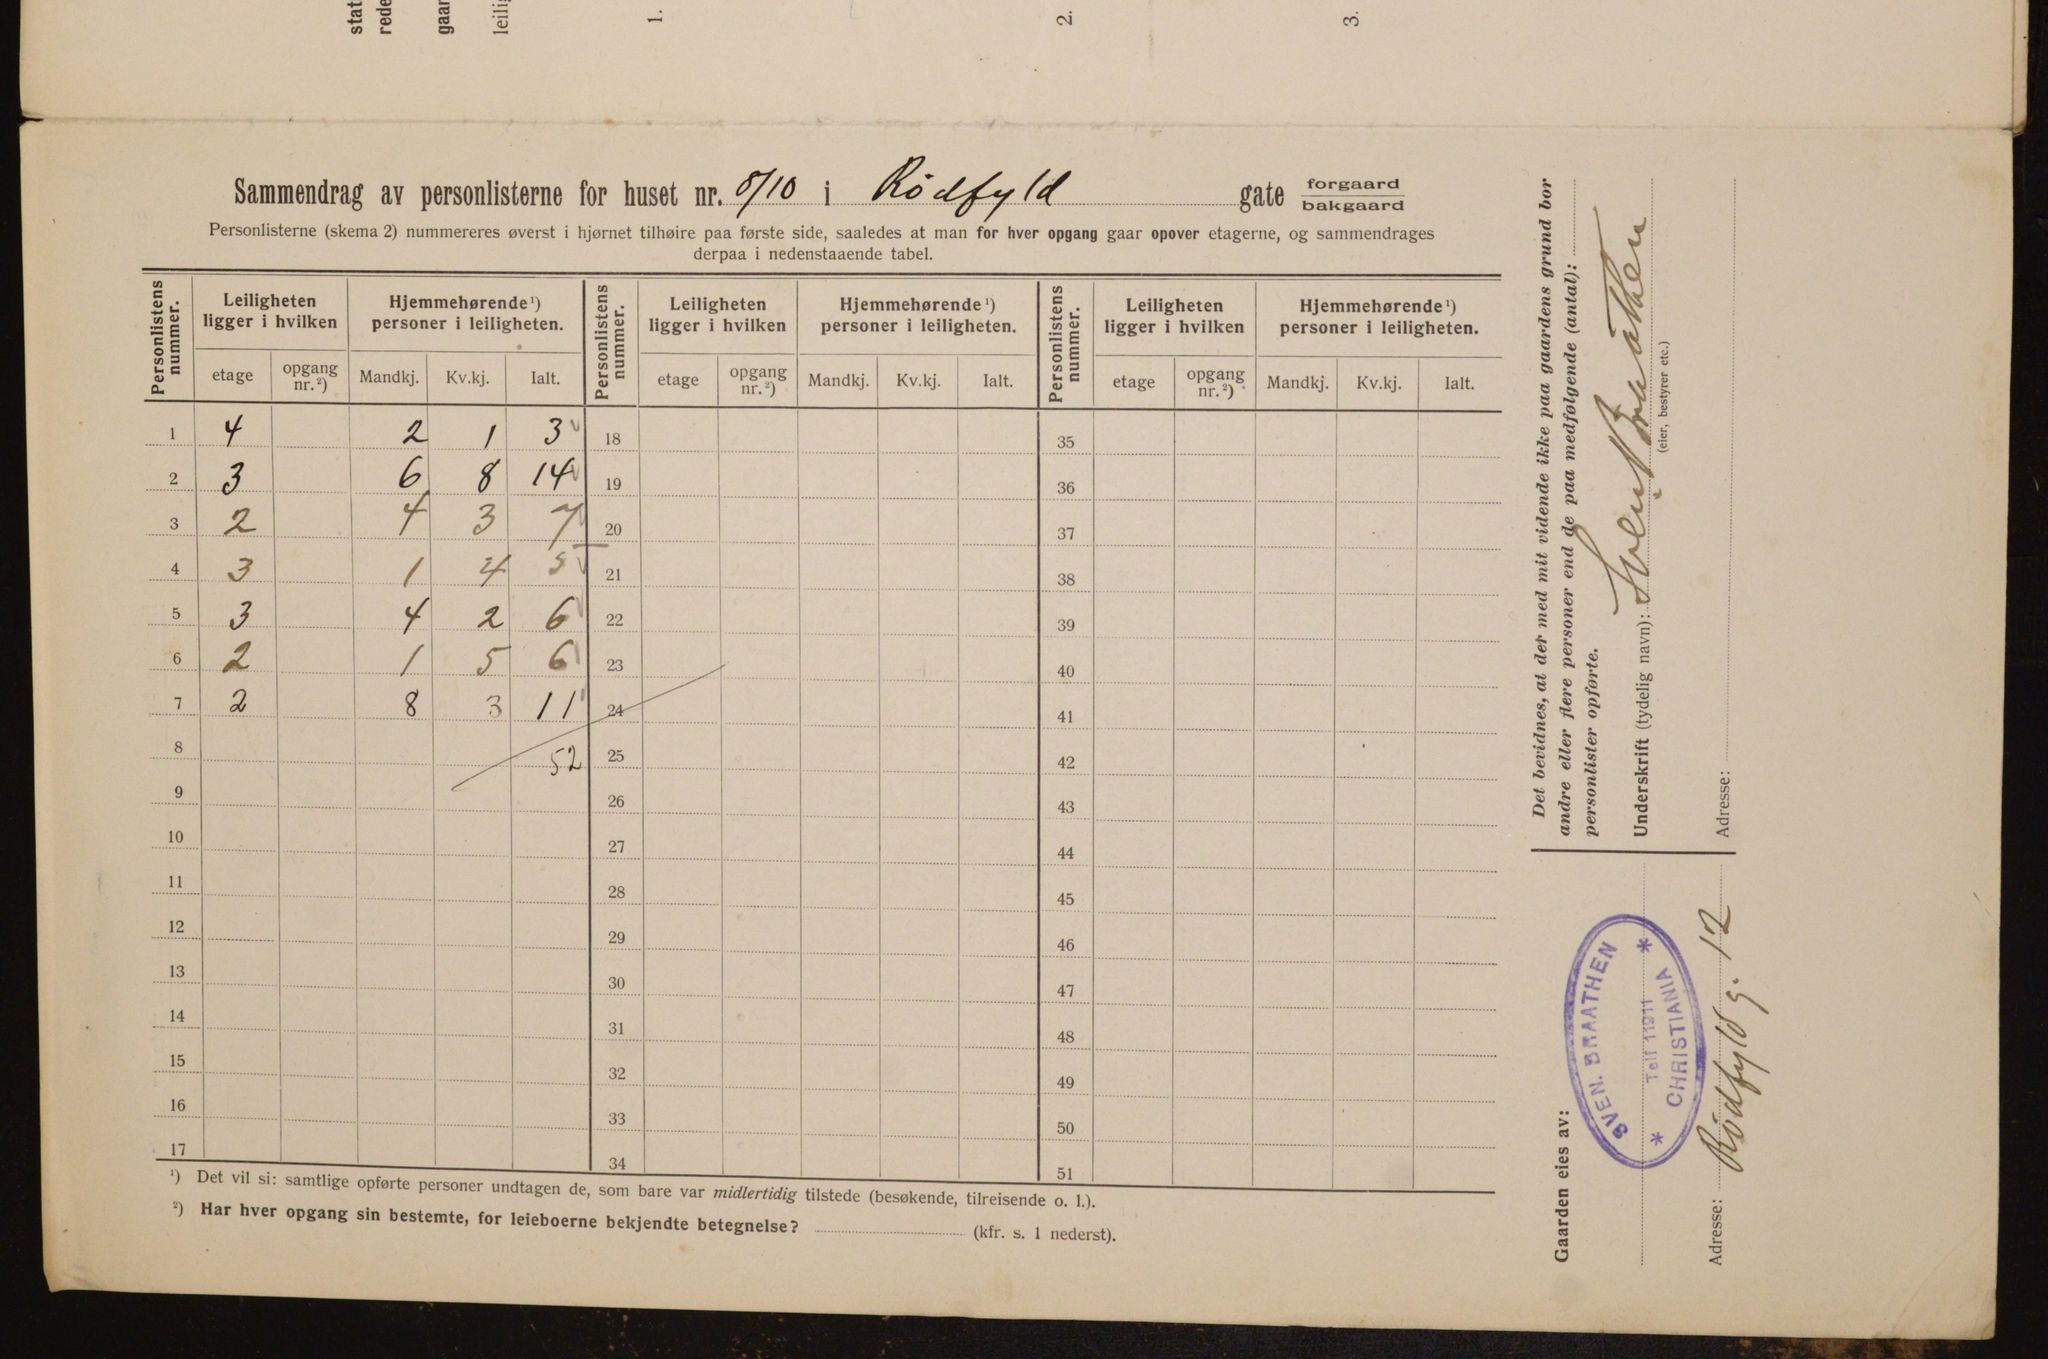 stat
rede
gaar
leilig
1.
2.
3.
Sammendrag av personlisterne for huset nr. 8/10 i Rødfyld gate forgaard
bakgaard
Personlisterne (skema 2) nummereres øverst i hjørnet tilhøire paa første side, saaledes at man for hver opgang gaar opover etagerne, og sammendrages
derpaa i nedenstaaende tabel.
Personlistens nummer. Leiligheten ligger i hvilken Hjemmehørende ¹) personer i leiligheten. Personlistens nummer. Leiligheten ligger i hvilken Hjemmehørende ¹) personer i leiligheten. Personlistens nummer. Leiligheten ligger i hvilken Hjemmehørende ¹) personer i leiligheten.
etage opgang nr. ²) Mandkj. Kv.kj. Ialt. etage opgang nr. ²) Mandkj. Kv.kj. Ialt. etage opgang nr. ²) Mandkj. Kv.kj. Ialt.
1 4 2 1 3 18 35
2 3 6 8 14 19 36
3 2 4 3 7 20 37
4 3 1 4 5 21 38
5 3 4 2 6 22 39
6 2 1 5 6 23 40
7 2 8 3 11 24 41
8 52 25 42
9 26 43
10 27 44
11 28 45
12 29 46
13 30 47
14 31 48
15 32 49
16 33 50
17 34 51
¹) Det vil si: samtlige opførte personer undtagen de, som bare var midlertidig tilstede (besøkende, tilreisende o. l.).
²) Har hver opgang sin bestemte, for leieboerne bekjendte betegnelse? (kfr. s. 1 nederst).
Det bevidnes, at der med mit vidende ikke paa gaardens grund bor
andre eller flere personer end de paa medfølgende (antal):
personlister opførte.
Underskrift (tydelig navn): Svein Braathen
(eier, bestyrer etc.)
Adresse:
Gaarden eies av:
SVEN. BRAATHEN
Telf 11911
* CHRISTIANIA *
Adresse: Rødfyldg. 12